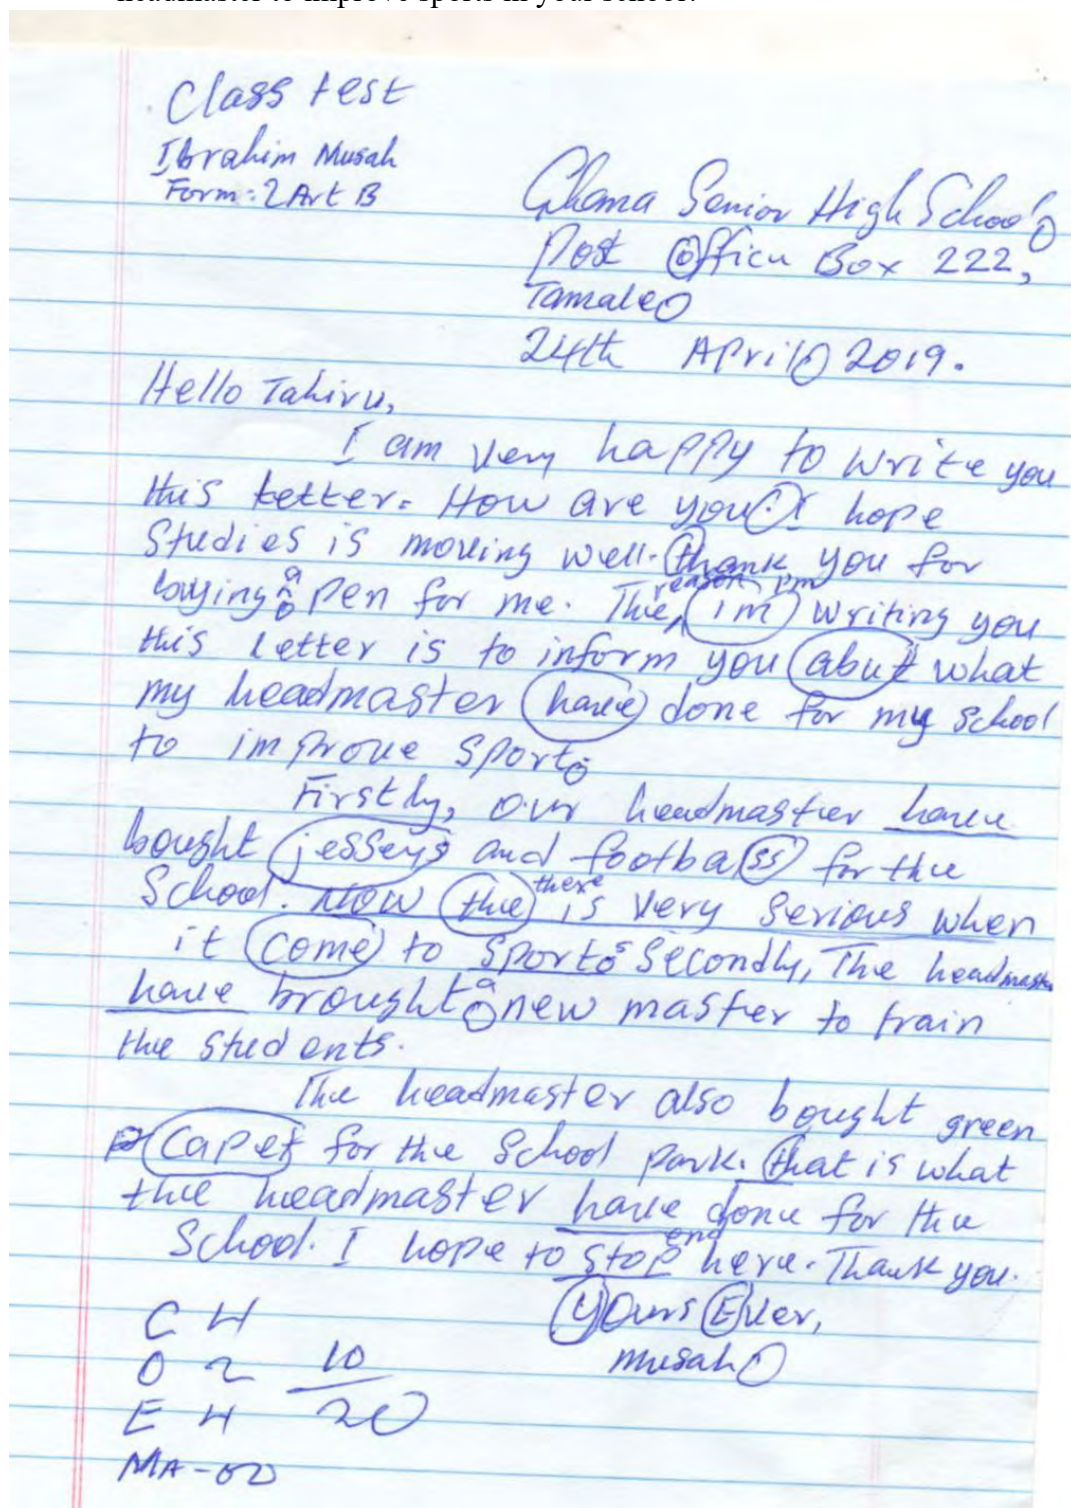 headmaster to improve sports in your school.
Class test
Ibrahim Musah
Form: 2 Art B
Ghana Senior High School
Post Office Box 222,
Tamale
24th April 2019.
Hello Tahiru,
I am very happy to write you
this letter. How are you. I hope
Studies is moving well. thank you for
buying a pen for me. The reason i'm im writing you
this letter is to inform you abut what
my headmaster have done for my school
to improve sport
Firstly, our headmaster have
bought jesseys and footbass for the
School. Now the there is very serious when
it come to sports Secondly, The headmaster
have brought a new master to train
the students.
The headmaster also bought green
capet for the School park. that is what
the headmaster have done for the
School. I hope to stop end here. Thank you.
Yours Ever,
Musah
C 4
O 2
E 4
MA-00
10
20